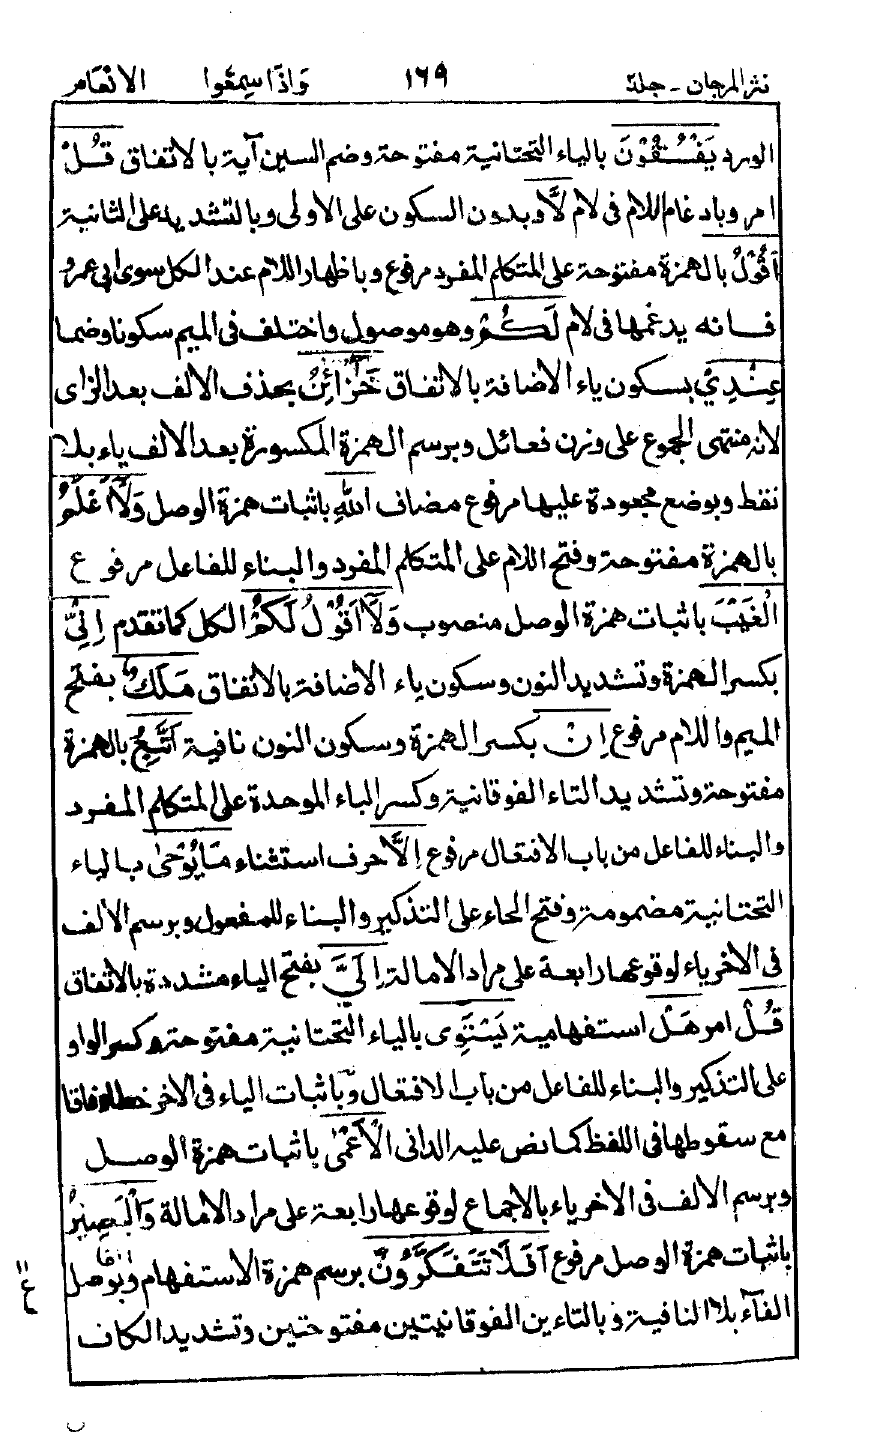 نثر المرجان - جلد ۱۶۹ واذا سمعوا الانعام
الورد يَفْسُقُوْنَ بالياء التحتانية مفتوحة وضم السين آية بالاتفاق قُلْ
امر وبادغام اللام فى لام لَّا وبدون السكون على الاولى وبالتشديد على الثانية
اَقُوْلُ بالهمزة مفتوحة على المتكلم المفرد مرفوع وباظهار اللام عند الكل سوى ابى عمرو
فانه يدغمها فى لام لَكُمْ وهو موصول واختلف فى الميم سكونا وضما
عِنْدِيْ بسكون ياء الاضافة بالاتفاق خَزَائِنُ بحذف الالف بعد الزاى
لانه منتهى الجموع على وزن فعائل وبرسم الهمزة المكسورة بعد الالف ياء بلا
نقط وبوضع مجعودة عليها مرفوع مضاف اللهِ باثبات همزة الوصل وَلَآ اَعْلَمُ
بالهمزة مفتوحة وفتح اللام على المتكلم المفرد والبناء للفاعل مرفوع
الْغَيْبَ باثبات همزة الوصل منصوب وَلَآ اَقُوْلُ لَكُمْ الكل كما تقدم اِنِّيْ
بكسر الهمزة وتشديد النون وسكون ياء الاضافة بالاتفاق مَلَكٌ بفتح
الميم واللام مرفوع اِنْ بكسر الهمزة وسكون النون نافية اَتَّبِعُ بالهمزة
مفتوحة وتشديد التاء الفوقانية وكسر الباء الموحدة على المتكلم المفرد
والبناء للفاعل من باب الافتعال مرفوع اِلَّا حرف استثناء مَا يُوْحٰى بالياء
التحتانية مضمومة وفتح الحاء على التذكير والبناء للمفعول وبرسم الالف
فى الاخر ياء لوقوعها رابعة على مراد الامالة اِلَيَّ بفتح الياء مشددة بالاتفاق
قُلْ امر هَلْ استفهامية يَسْتَوِى بالياء التحتانية مفتوحة وكسر الواو
على التذكير والبناء للفاعل من باب الافتعال وباثبات الياء فى الاخر خطا وفاقا
مع سقوطها فى اللفظ كما نص عليه الدانى الْاَعْمٰى باثبات همزة الوصل
وبرسم الالف فى الاخر ياء بالاجماع لوقوعها رابعة على مراد الامالة وَالْبَصِيْرُ
باثبات همزة الوصل مرفوع اَفَلَا تَتَفَكَّرُوْنَ برسم همزة الاستفهام وبوصل
الفآء بلا النافية وبالتاءين الفوقانيتين مفتوحتين وتشديد الكاف